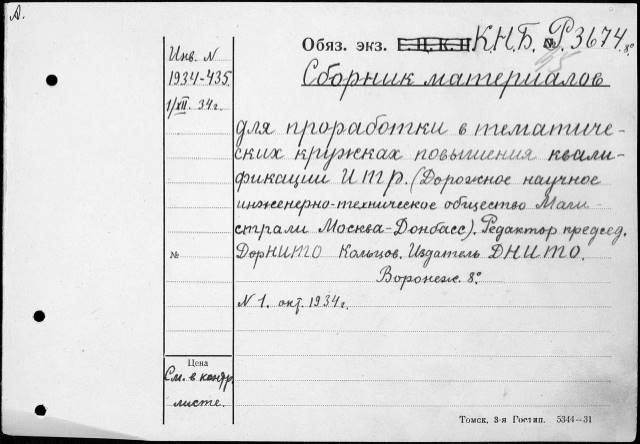 А.
Обяз. экз. Е.Ц.К.П К.Н.Б. № Р3674. 8°.
Инв. N
1934-435
1/XII. 34г.
Сборник материалов
для проработки в тематиче-
ских кружках повышения квали-
фикации ИТР. (Дорожное научное
инженерно-техническое общество Маги-
страли Москва-Донбасс). Редактор председ.
№
ДорНИТО Кольцов. Издатель ДНИТО.
Воронеж. 8°
N 1. окт. 1934г.
Цена
См. в контр.
листе.
Томск, 3-я Гостип. 5344—31